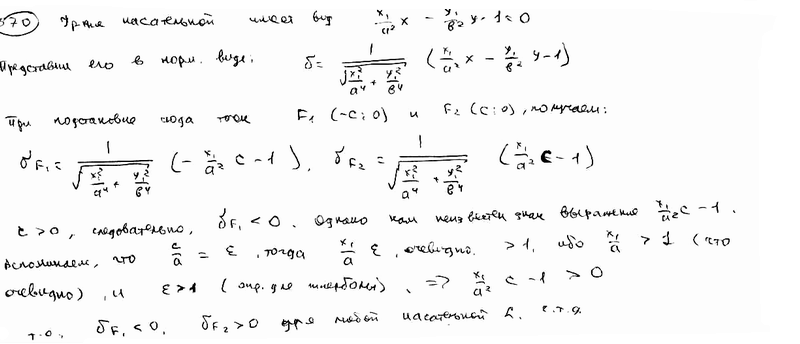 570 Ур-ние касательной имеет вид x₁/a² x - y₁/b² y - 1 = 0
Представим его в норм. виде: δ = 1/√(x₁²/a⁴ + y₁²/b⁴) (x₁/a² x - y₁/b² y - 1)
При подстановке сюда точек F₁ (-c; 0) и F₂ (c; 0), получаем:
δF₁ = 1/√(x₁²/a⁴ + y₁²/b⁴) (- x₁/a² c - 1), δF₂ = 1/√(x₁²/a⁴ + y₁²/b⁴) (x₁/a² c - 1)
c > 0, следовательно, δF₁ < 0. Однако нам неизвестен знак выражения x₁/a² c - 1.
Вспоминаем, что c/a = ε, тогда x₁/a ε, очевидно, > 1, ибо x₁/a > 1 (что
очевидно), и ε > 1 (опр. для гиперболы), => x₁/a² c - 1 > 0
т.о. δF₁ < 0, δF₂ > 0 для любой касательной L. ч.т.д.